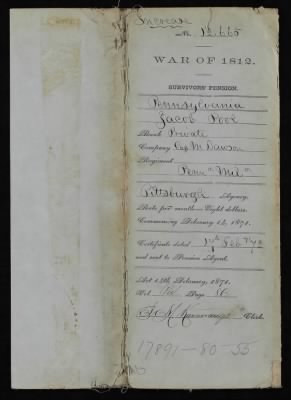 Increase
No. 12.665
WAR OF 1812.
SURVIVORS' PENSION.
Pennsylvania
Jacob Pool
Rank Private
Company Cap M Dawson
Regiment
Penna Mila
Pittsburgh Agency.
Rate per month—Eight dollars.
Commencing February 14, 1871.
Certificate dated
and sent to Pension Agent.
Act 14th February, 1871.
Vol. Page
Clerk.
17891-80-55